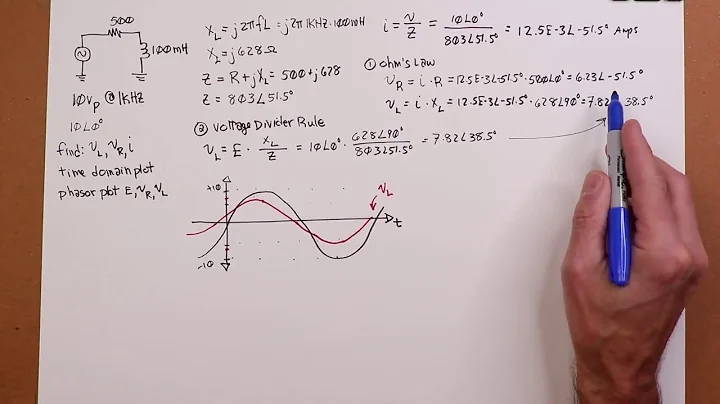 500
100mH
10Vp @ 1KHz
10∠0°
find: VL, VR, i
time domain plot
phasor plot E, VR, VL
XL = j2πfL = j2π1KHz·100mH
XL = j628Ω
Z = R + jXL = 500 + j628
Z = 803∠51.5°
i = v/Z = 10∠0°/803∠51.5° = 12.5E-3∠-51.5° Amps
① Ohm's Law
VR = i · R = 12.5E-3∠-51.5° · 500∠0° = 6.23∠-51.5°
VL = i · XL = 12.5E-3∠-51.5° · 628∠90° = 7.82 38.5°
② Voltage Divider Rule
VL = E · XL/Z = 10∠0° · 628∠90°/803∠51.5° = 7.82∠38.5°
+10
VL
t
-10